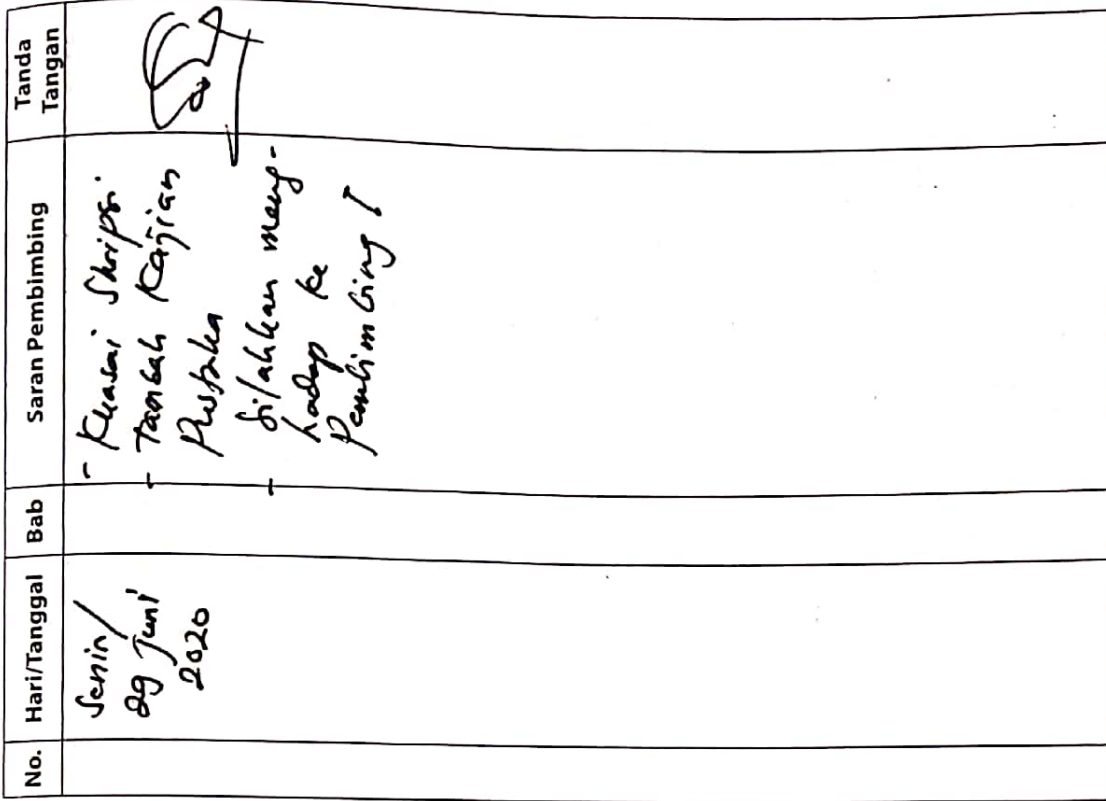 No. Hari/Tanggal Bab Saran Pembimbing Tanda Tangan
Senin/
29 Juni
2020
- Kuasai Skripsi
- Tambah Kajian
Pustaka
- Silahkan meng-
hadap ke
Pembimbing !